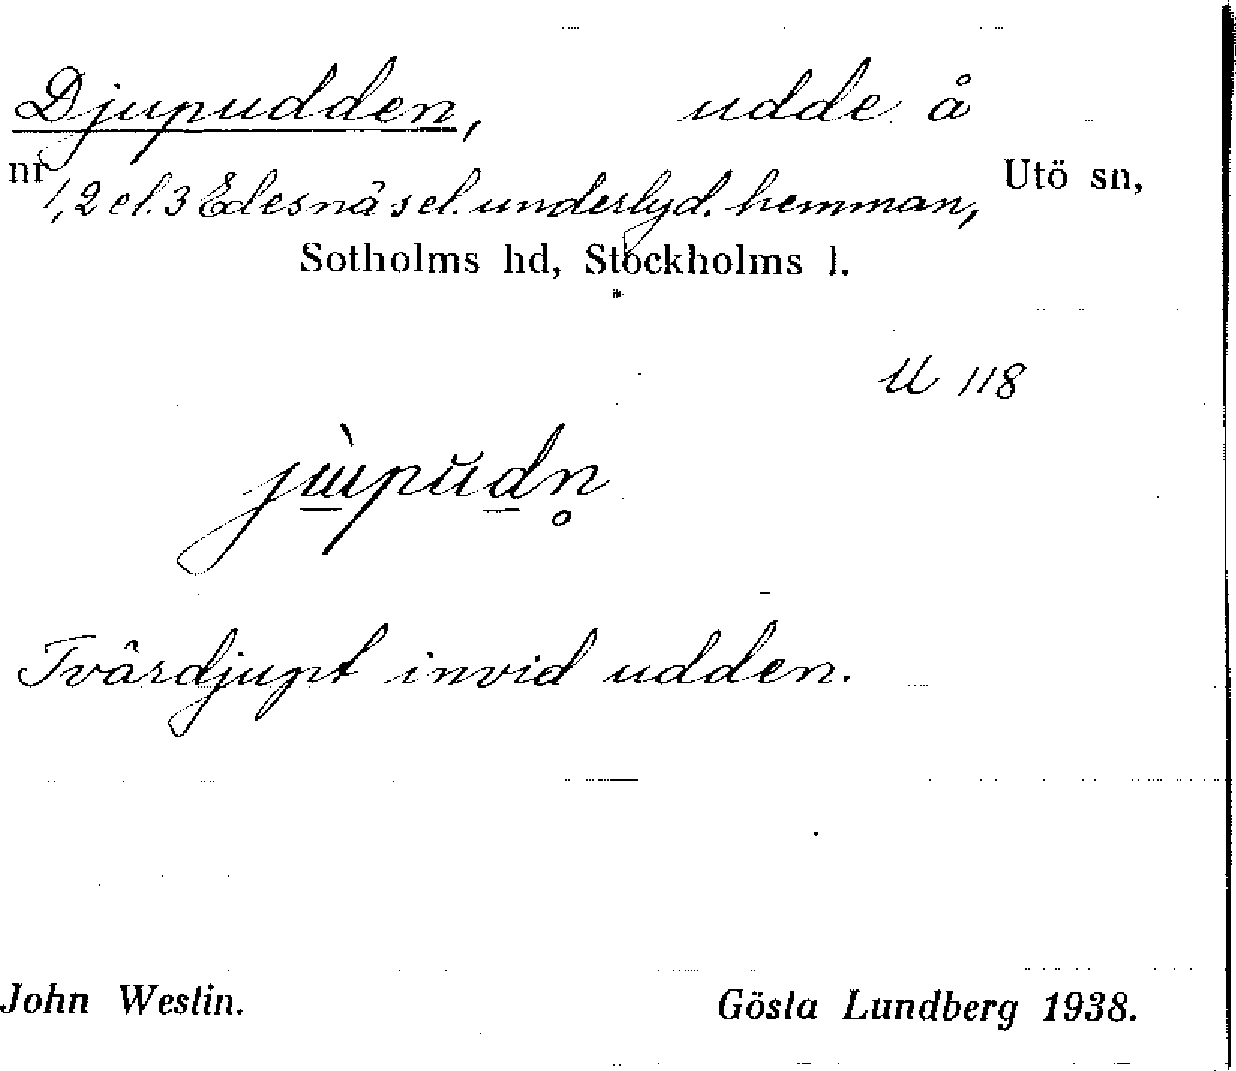 Djupudden, udde å
nr 1, 2 el. 3 Edesnäs el. underlyd. hemman, Utö sn,
Sotholms hd, Stockholms l.
U 118
jɯ̀pŭdn̥
Tvärdjupt invid udden.
John Westin. Gösta Lundberg 1938.